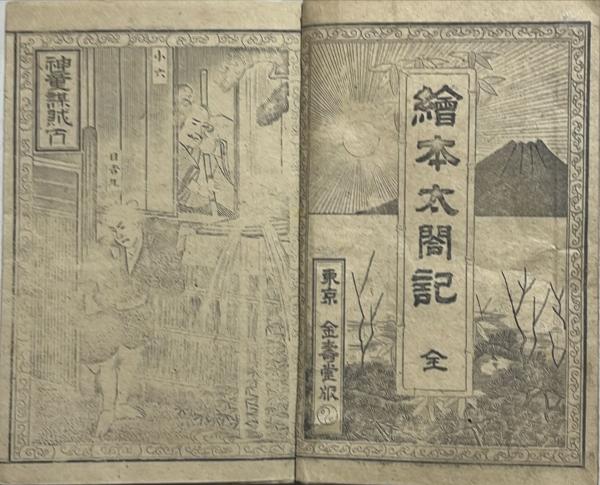 繪本太閤記 全
東京 金壽堂版
神童謀賊下
小六
日吉丸